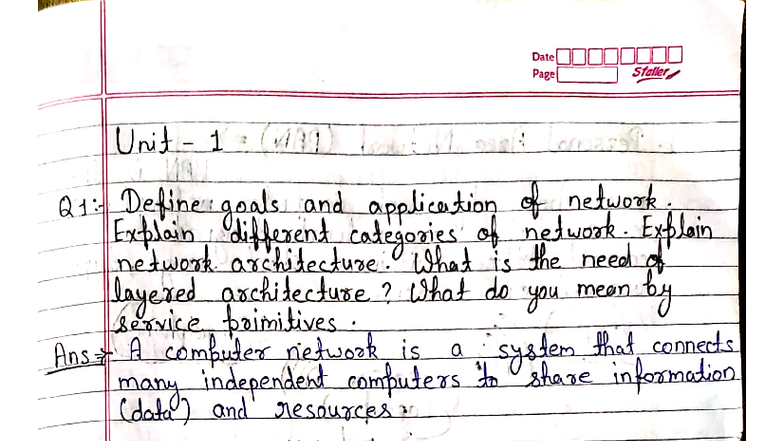 Date
Page
Staller
Unit - 1
Q1:- Define goals and application of network.
Explain different categories of network. Explain
network architecture. What is the need of
layered architecture? What do you mean by
service primitives.
Ans ⇒ A computer network is a system that connects
many independent computers to share information
(data) and resources.